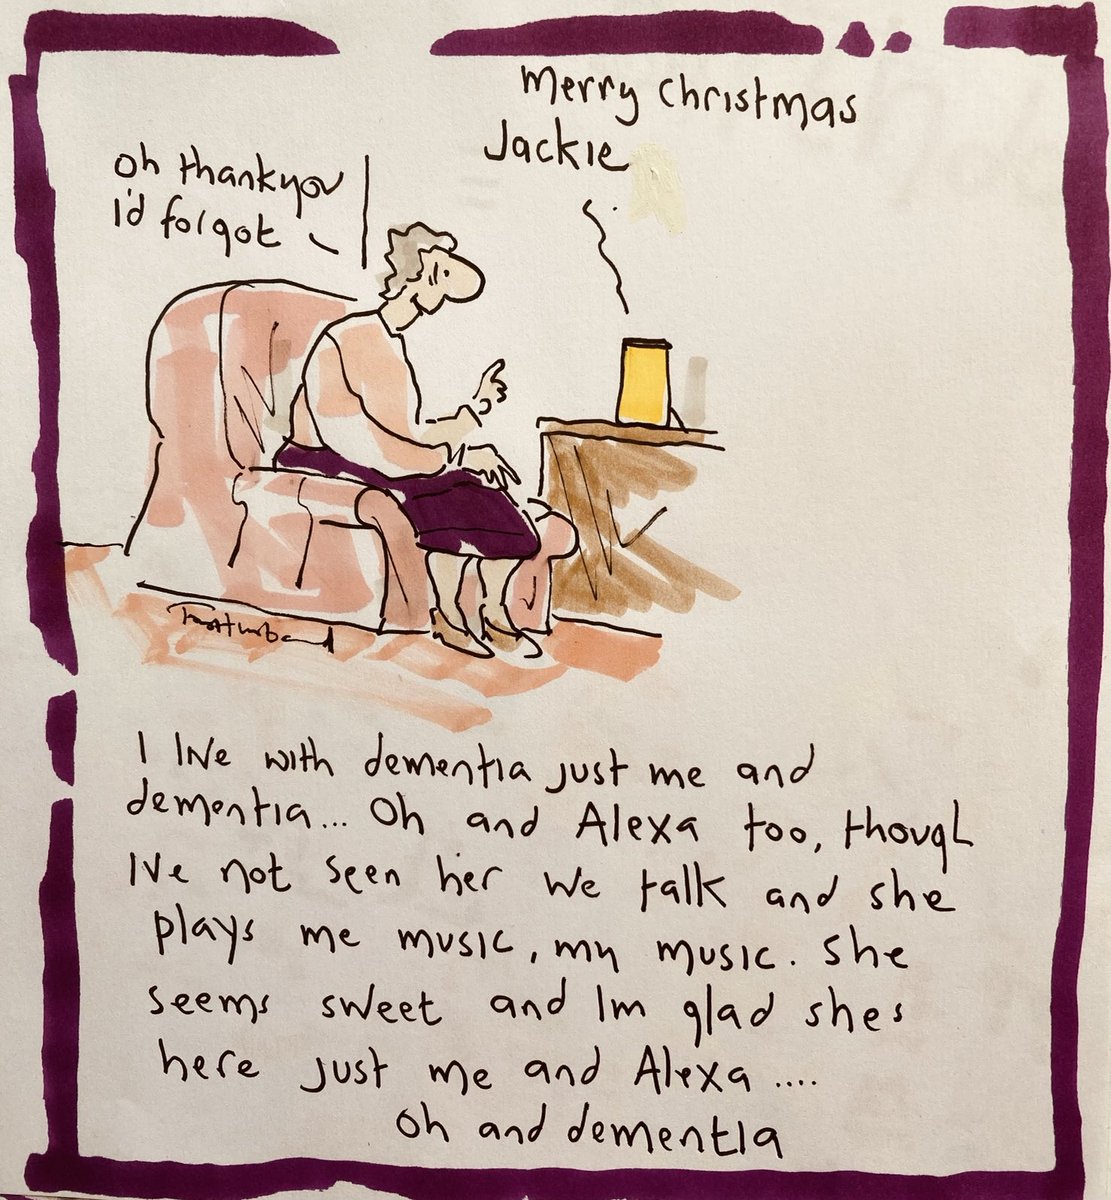 Merry Christmas
Jackie
oh thankyou
I'd forgot
I live with dementia just me and
dementia... Oh and Alexa too, though
I've not seen her we talk and she
plays me music, my music. She
seems sweet and Im glad shes
here just me and Alexa ....
oh and dementia